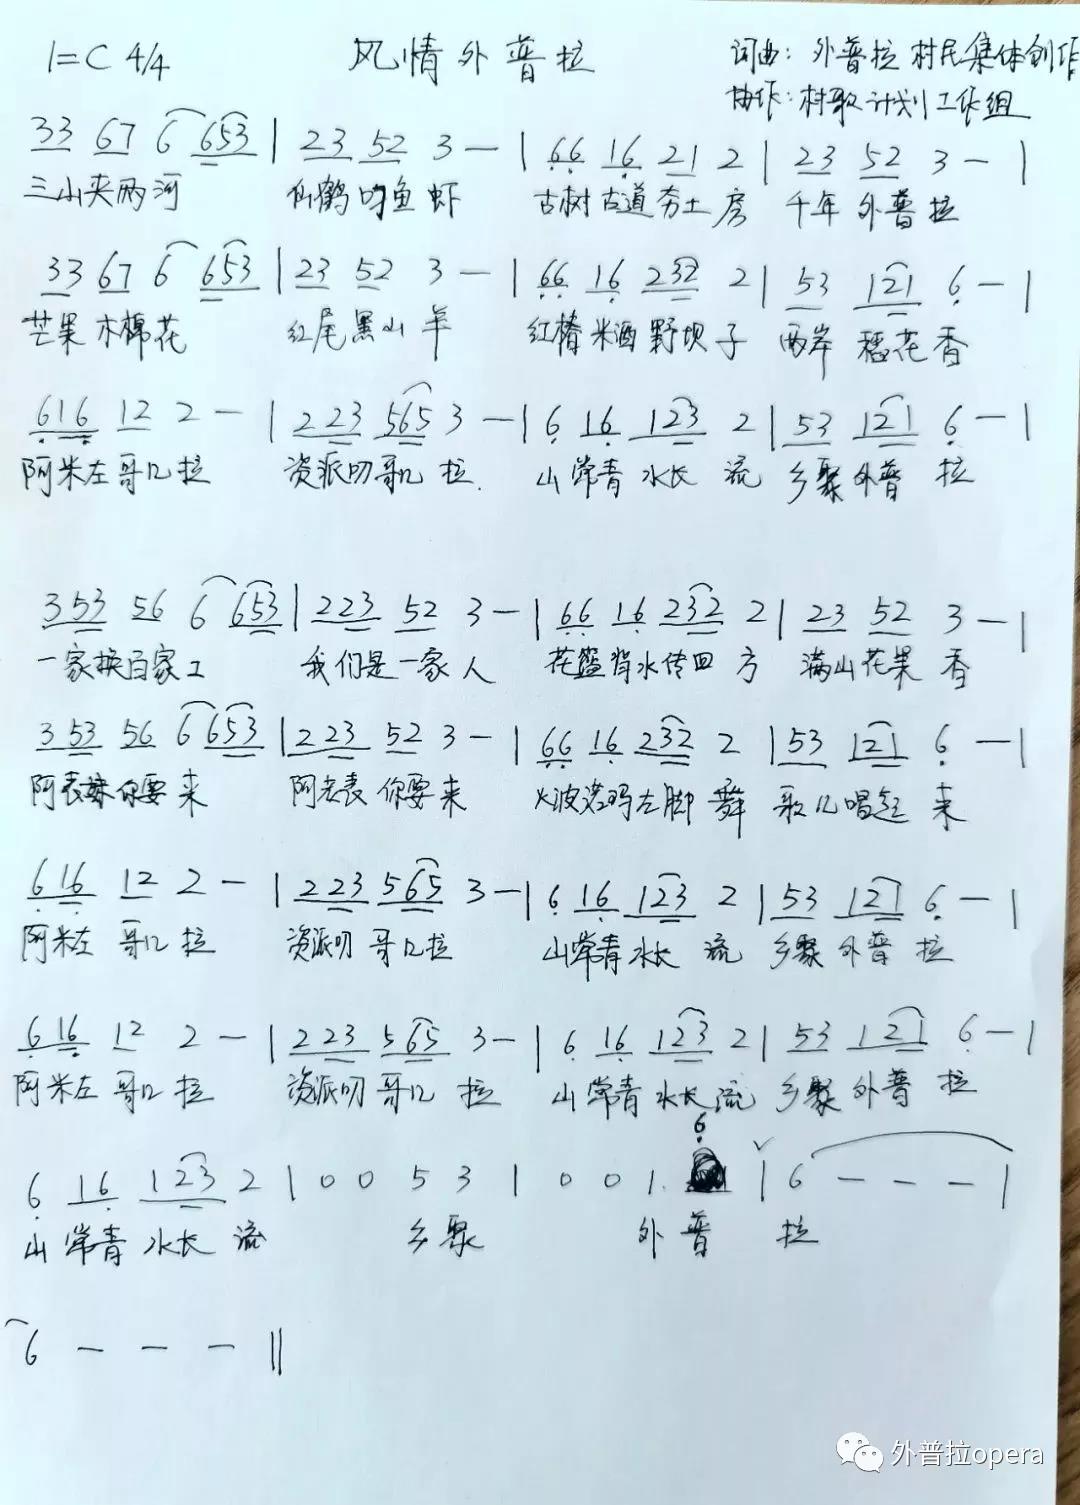 1=C 4/4 风情外普拉 词曲：外普拉村民集体创作
协作：村歌计划工作组
33 67 6 653 | 23 52 3 — | 66 16 21 2 | 23 52 3 — |
三山夹两河 仙鹤叼鱼虾 古树古道夯土房 千年外普拉
33 67 6 653 | 23 52 3 — | 66 16 232 2 | 53 121 6 — |
芒果木棉花 红尾黑山羊 红椿米酒野坝子 两岸稻花香
616 12 2 — | 223 565 3 — | 6 16 123 2 | 53 121 6 — |
阿米左哥几拉 资派叨哥几拉. 山常青水长流 乡聚外普拉
353 56 6 653 | 223 52 3 — | 66 16 232 2 | 23 52 3 — |
一家换百家工 我们是一家人 花篮背水传四方 满山花果香
353 56 6 653 | 223 52 3 — | 66 16 232 2 | 53 121 6 — |
阿表妹你要来 阿老表你要来 火波洛玛左脚舞 歌儿唱起来
616 12 2 — | 223 565 3 — | 6 16 123 2 | 53 121 6 — |
阿米左哥几拉 资派叨哥几拉 山常青水长流 乡聚外普拉
616 12 2 — | 223 565 3 — | 6 16 123 2 | 53 121 6 — |
阿米左哥几拉 资派叨哥几拉 山常青水长流 乡聚外普拉
6 16 123 2 | 0 0 5 3 | 0 0 1. 6 | 6 — — — |
山常青水长流 乡聚 外普拉
6 — — — ‖
外普拉opera